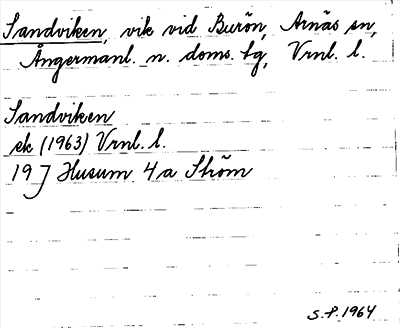 Sandviken, vik vid Burön, Arnäs sn,
Ångermanl. n. doms. tg, Vrnl. l.
Sandviken
ek (1963) Vrnl. l.
19 J Husum 4a Ström
S.P. 1964